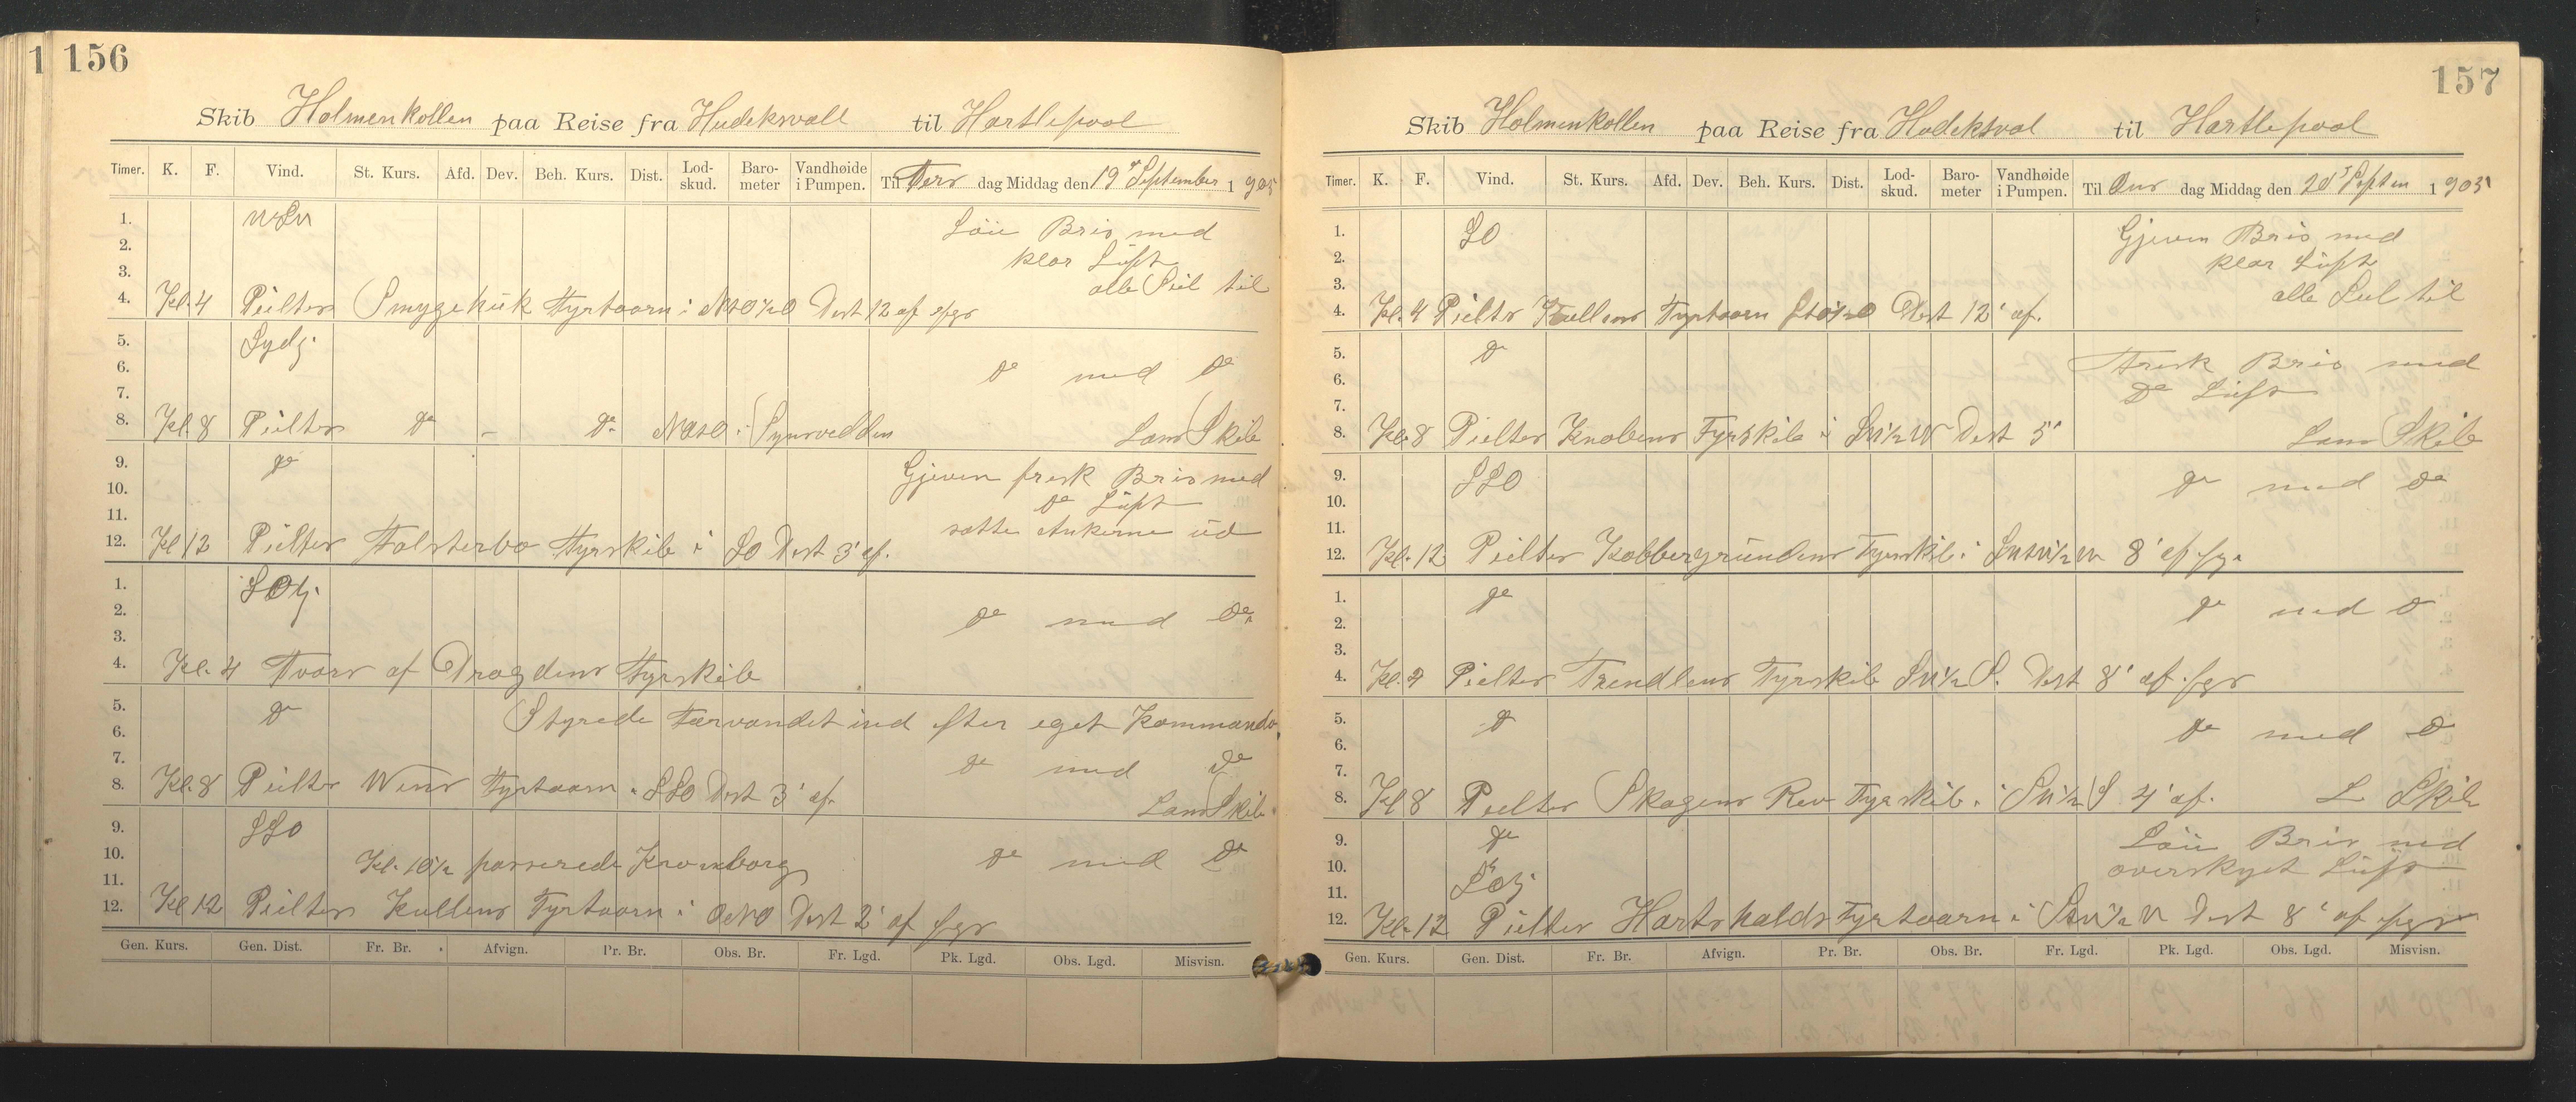 1 156
Skib Holmenkollen paa Reise fra Hudeksvall til Hartlepool
Timer. K. F. Vind. St. Kurs. Afd. Dev. Beh. Kurs. Dist. Lod-skud. Baro-meter Vandhøide i Pumpen. Til Ters dag Middag den 19 September 1905
1. Löu Bris med
2. klar Luft
3. alle Seil til
4. Kl. 4 Peilter Smygehuk Fyrtaarn i NtO½O Dist 12 af
5. Sydlj.
6. Do med Do
7.
8. Kl. 8 Peilter Do - Do
Lans Skib
9. Do Gjeven frisk Bris med
10. Do Luft
11. satte Ankerne ud
12. Kl 12 Peilter Falsterbo Fyrskib i SO Dist 3' af.
1. SOlj.
2. Do med Do
3.
4. Kl. 4 Tvars af Dragdens Fyrskib
5. Do Styrede Farvandet ind efter eget Kommando
6.
7. Do med Do
8. Kl. 8 Peilter Wens Fyrtaarn i SSO Dist 3' af.
Lans Skib.
9. SSO
10. Kl. 10½ passerede Kronborg Do med Do
11.
12. Kl 12 Peilter Kullens Fyrtaarn i ONO Dist 2' af
Gen. Kurs. Gen. Dist. Fr. Br. Afvign. Pr. Br. Obs. Br. Fr. Lgd. Pk. Lgd. Obs. Lgd. Misvisn.
157
Skib Holmenkollen paa Reise fra Hudeksval til Hartlepool
Timer. K. F. Vind. St. Kurs. Afd. Dev. Beh. Kurs. Dist. Lod-skud. Baro-meter Vandhøide i Pumpen. Til Ons dag Middag den 20 Septem 1905
1. SO Gjeven Bris med
2. klar Luft
3. alle Seil til
4. Kl. 4 Peilter Kullens Fyrtaarn StO½O Dist 12' af.
5. Do Frisk Bris med
6. Do Luft
7.
8. Kl. 8 Peilter Knobens Fyrskib i SW½W Dist 5'
Lans Skib
9. SSO Do med Do
10.
11.
12. Kl. 12 Peilter Kobbergrundens Fyrskib i 8' af
1. Do Do med Do
2.
3.
4. Kl. 4 Peilter Trendlens Fyrskib SW½S. Dist 8' af
5. Do Do med Do
6.
7.
8. Kl 8 Peilter Skagens Rev Fyrskib i SW½S 4' af. L Skib
9. Do Löu Bris med
10. overskyet Luft
11. SOlj
12. Kl. 12 Peilter Hartshalds Fyrtaarn i Dist 8' af
Gen. Kurs. Gen. Dist. Fr. Br. Afvign. Pr. Br. Obs. Br. Fr. Lgd. Pk. Lgd. Obs. Lgd. Misvisn.